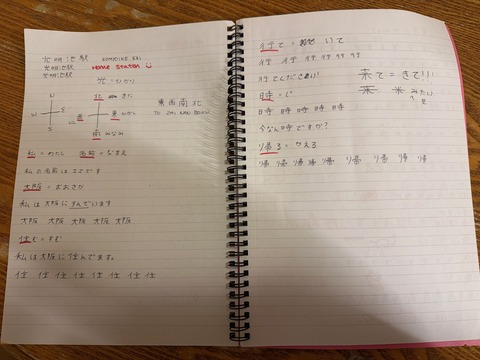 光明池駅 KOMYOIKE EKI
光明池駅 Home Station
光明池駅
光 = ひかり
N
W E
S
北 きた
西 東 ひがし
南 みなみ
東西南北
TO ZAI NAN BOKU
私 = わたし 名前 = なまえ
私の名前はエマです
大阪 = おおさか
私は大阪にすんでいます
大阪 大阪 大阪 大阪 大阪
住む = すむ
私は大阪に住んでます。
住 住 住 住 住 住 住 住
行て = いて
行 行 行 行 行 行 行
行てんださい!
来て = きて!!
米 みたい
時 = じ
時 時 時 時 時 時
今なん時ですか?
帰る = かえる
帰 帰 帰 帰 帰 帰 帰 帰